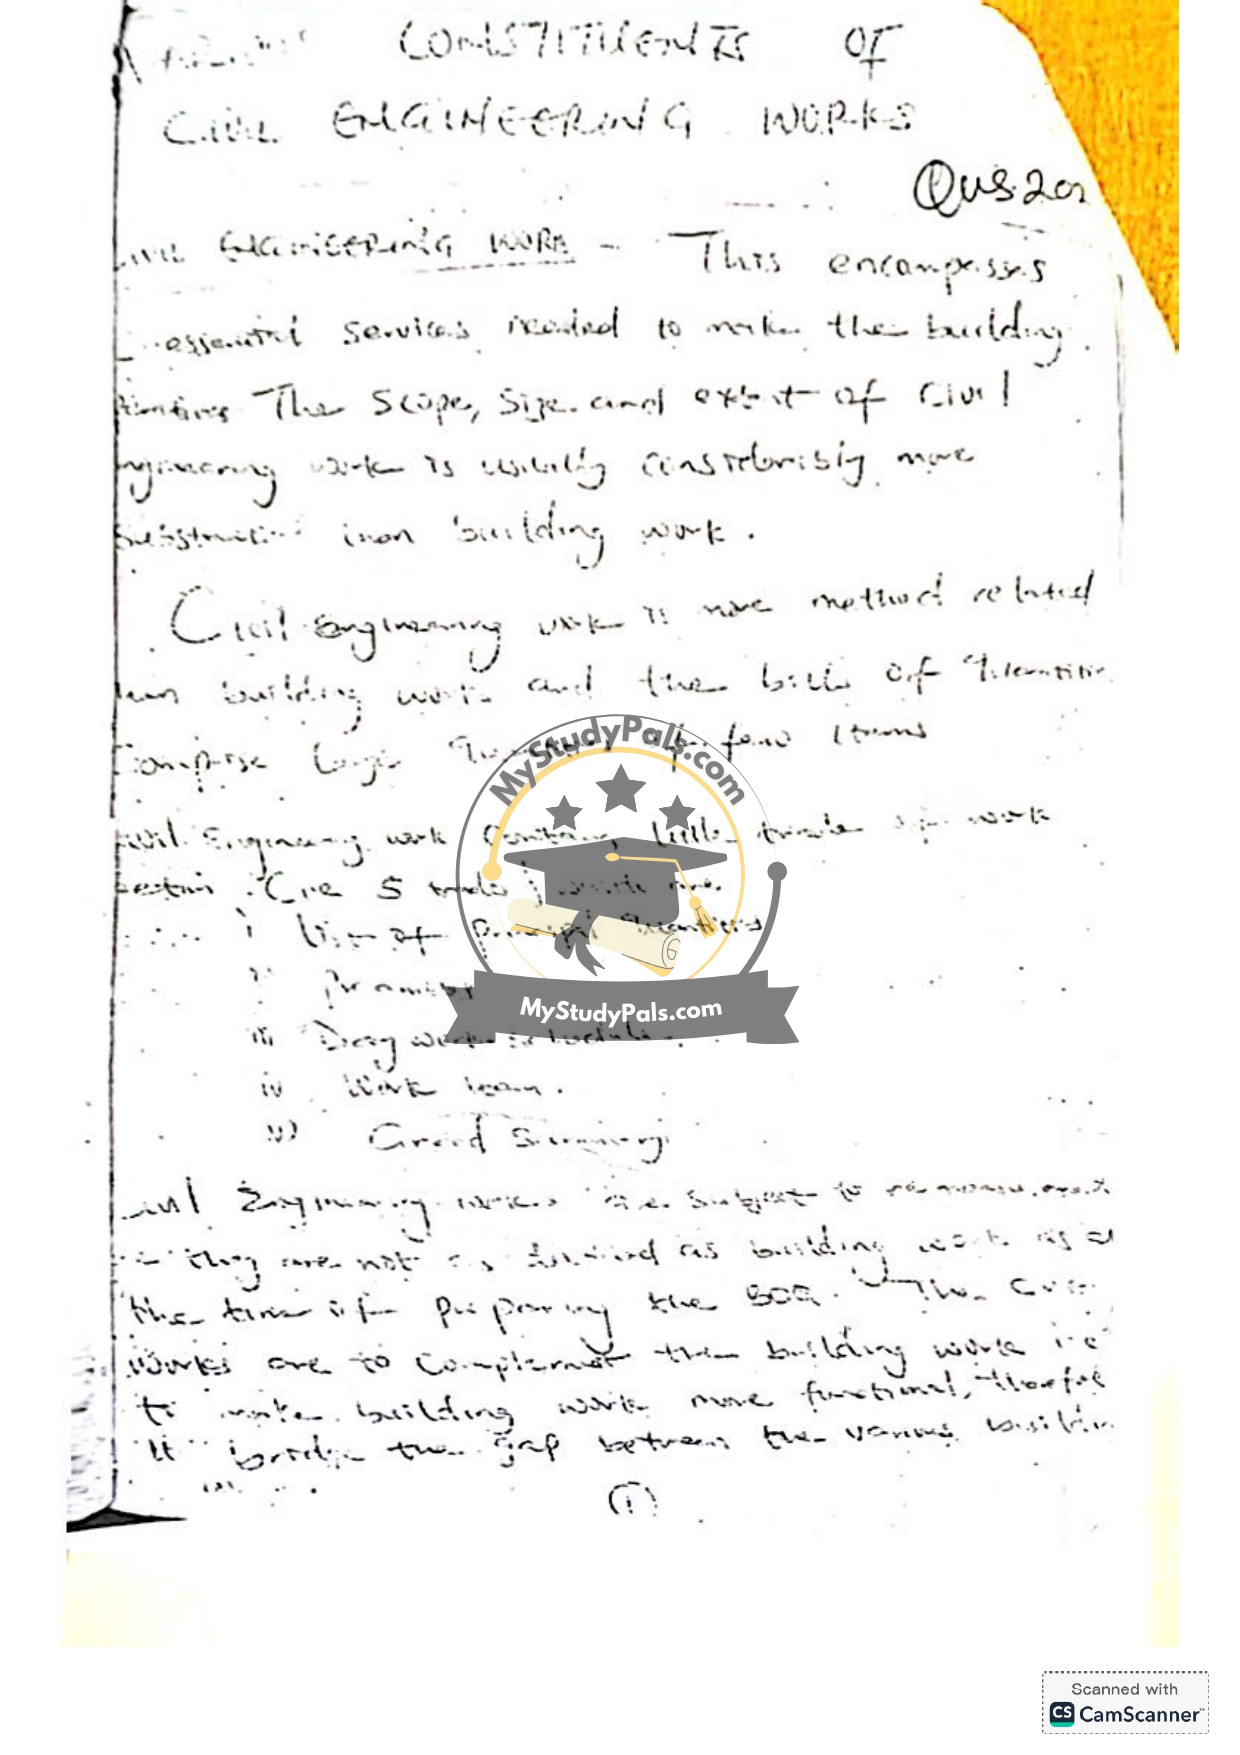 CONSTITUENTS OF
CIVIL ENGINEERING WORKS
QUS 202
CIVIL ENGINEERING WORK - This encompasses
essential services needed to make the building
The Scope, Size and extent of Civil
Engineering work is usually considerably more
than building work.
Civil Engineering work is more method related
than building work and the bills of quantities
Comprise large quantities of few items
Civil Engineering work contains little trade of work
section i.e 5 trades which are
i List of principal quantities
ii Preamble
iii Day work schedule
iv Work items.
v) Grand Summary
Civil Engineering works are subject to re-measurement
they are not as detailed as building work as at
the time of preparing the BOQ. The Civil
works are to complement the building work i.e
to make building work more functional, therefore
it bridge the gap between the various building
(1)
MyStudyPals.com
MyStudyPals.com
Scanned with
CS CamScanner